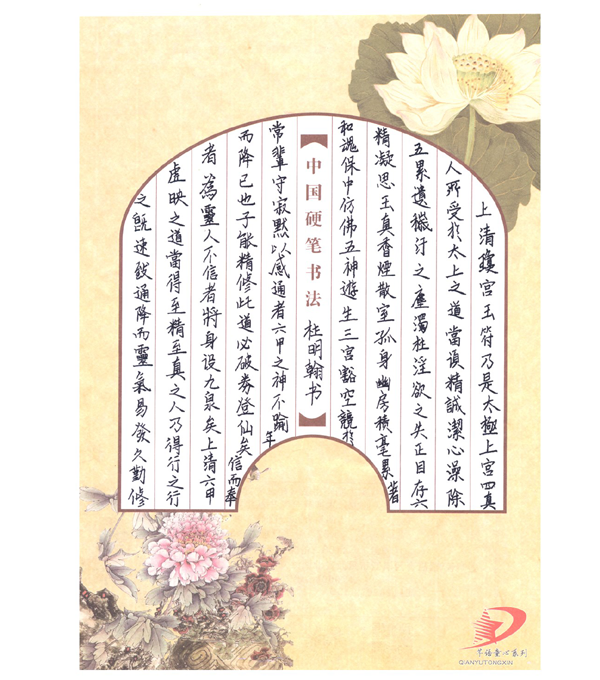 上清瓊宮玉符乃是太極上宮四真
人所受於太上之道當須精誠潔心澡除
五累遺穢汙之塵濁杜淫欲之失正目存六
精凝思玉真香煙散室孤身幽房積毫累著
和魂保中仿佛五神遊生三宮豁空競於
【中国硬笔书法 杜明翰书】
常輩守寂默以感通者六甲之神不踰年
而降已也子能精修此道必破券登仙矣信而奉
者為靈人不信者將身設九泉矣上清六甲
虛映之道當得至精至真之人乃得行之行
之既速致通降而靈氣易發久勤修
芊语童心系列
QIANYUTONGXIN